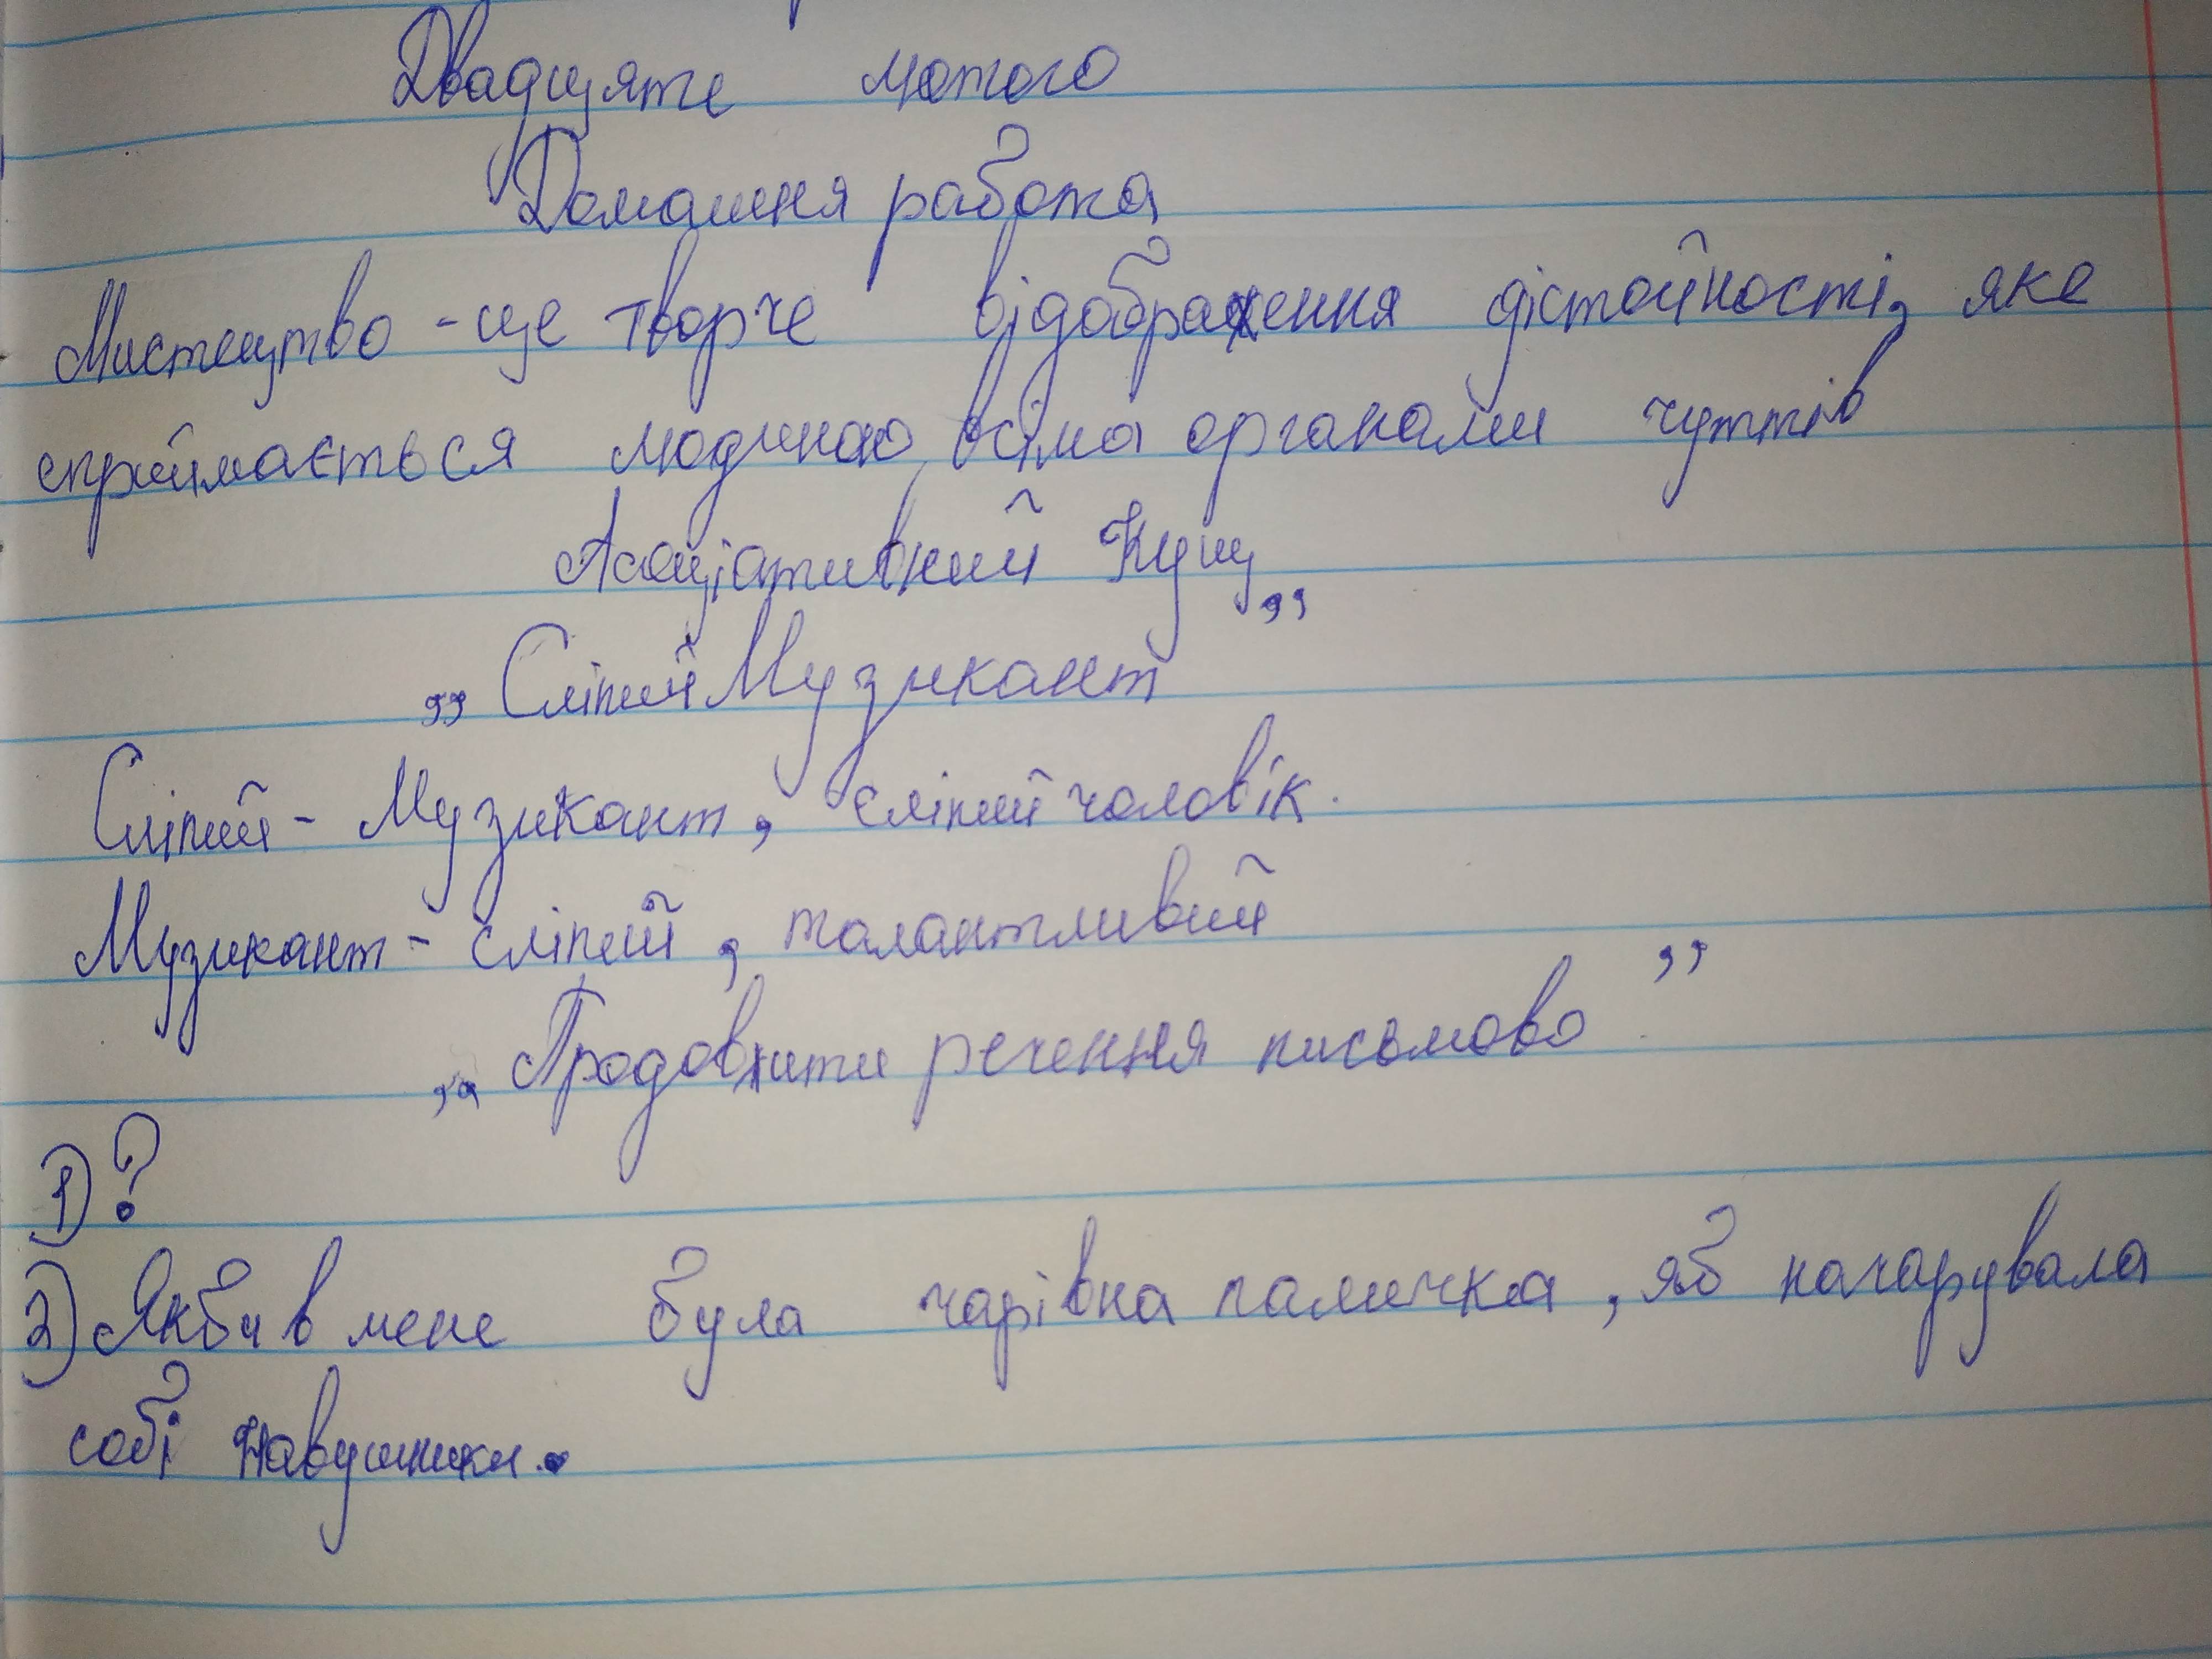 Двадцяте лютого
Домашня работа
Мистецтво - це творче відображення дістойності, яке
сприймається людиною всіма органами чуттів
Асоціативний Кущ
„Сліпий Музикант”
Сліпий - Музикант, сліпий чоловік.
Музикант - сліпий, талантливий
„Продовжити речення письмово”
1) ?
2) Якби в мене була чарівна паличка, яб начарувала
собі навушники.